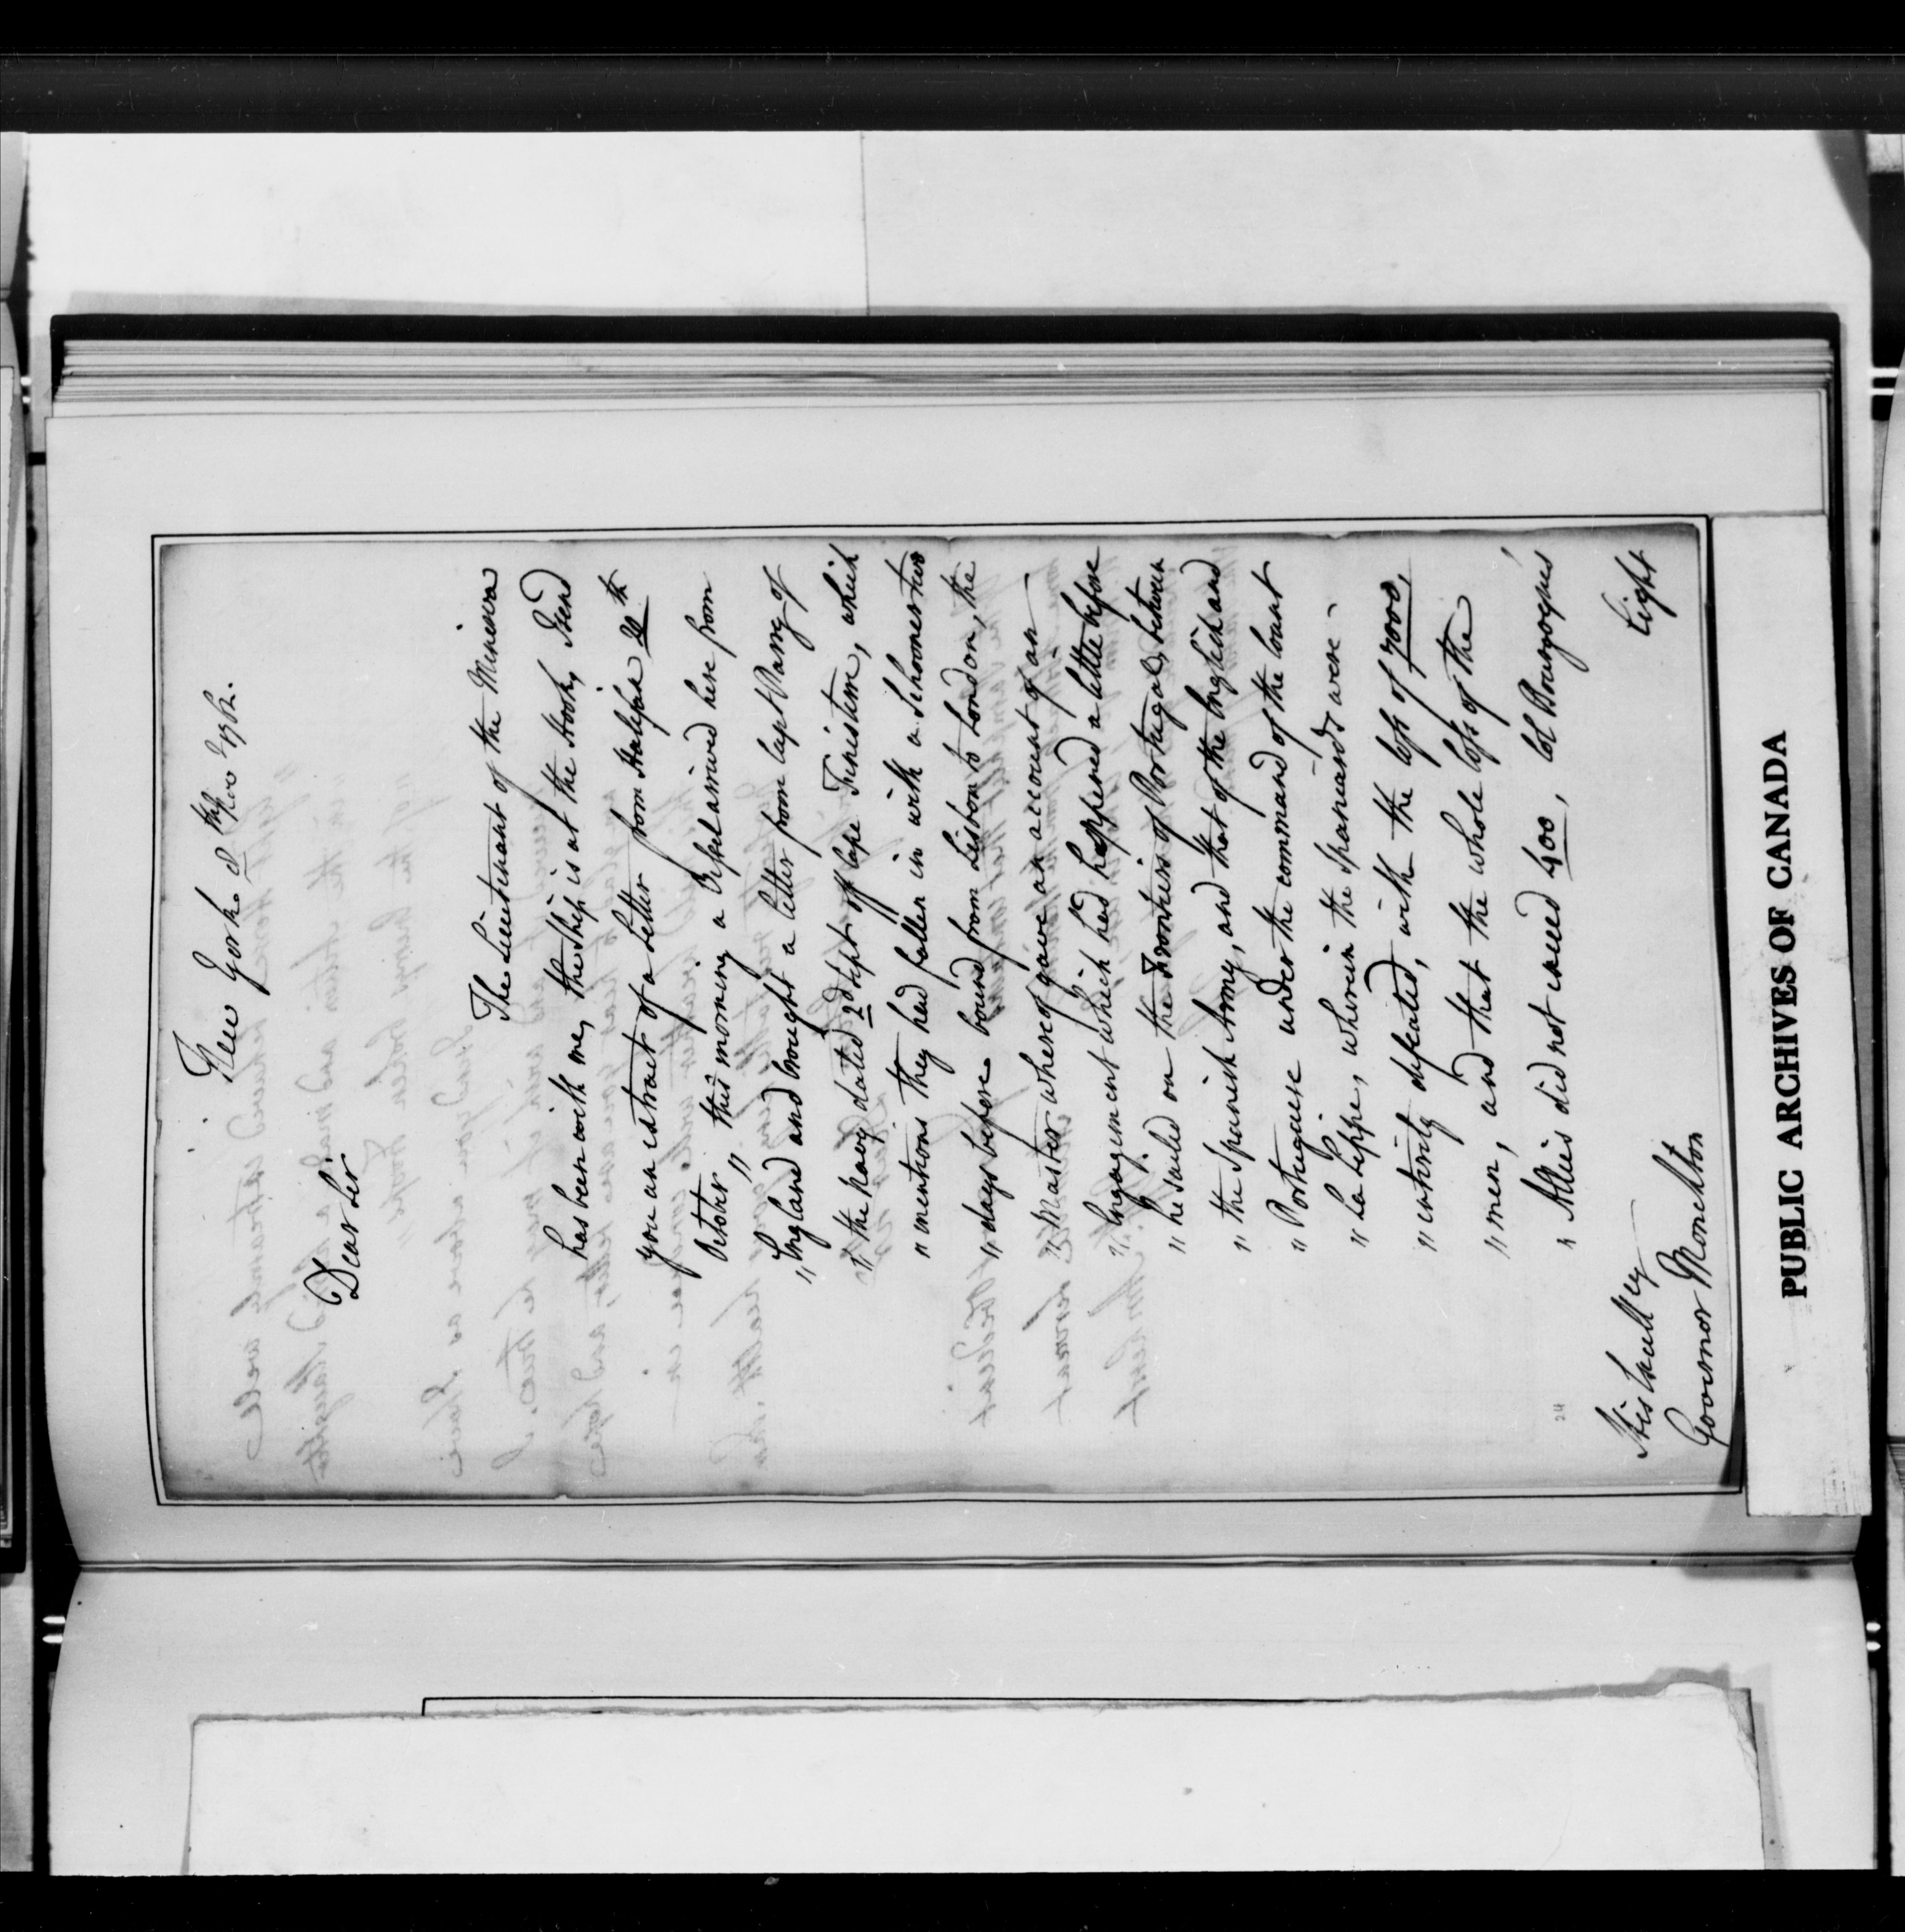 New York 8th Nov 1762.
Dear Sir
The Lieutenant of the Minerva
has been with me, the Ship is at the Hook, I send
you an extract of a Letter from Halifax 20th
October " this morning a Vessel arrived here from
" England and brought a letter from Capt Parry of
" the Navy dated 2d Sept off Cape Finisterre, which
" mentions they had fallen in with a Schooner two
" days before bound from Lisbon to London, the
" Master whereof gave an account of an
" Engagement which had happened a little before
" he sailed on the Frontiers of Portugal, between
" the Spanish Army, and that of the English and
" Portuguese under the command of the Count
" La Lippe, wherein the Spaniards were
" entirely defeated, with the loss of 7000,
" men, and that the whole loss of the
" Allies did not exceed 400, Col Bourgoyne's
Light
His Excell'cy
Governor Monckton
24
PUBLIC ARCHIVES OF CANADA